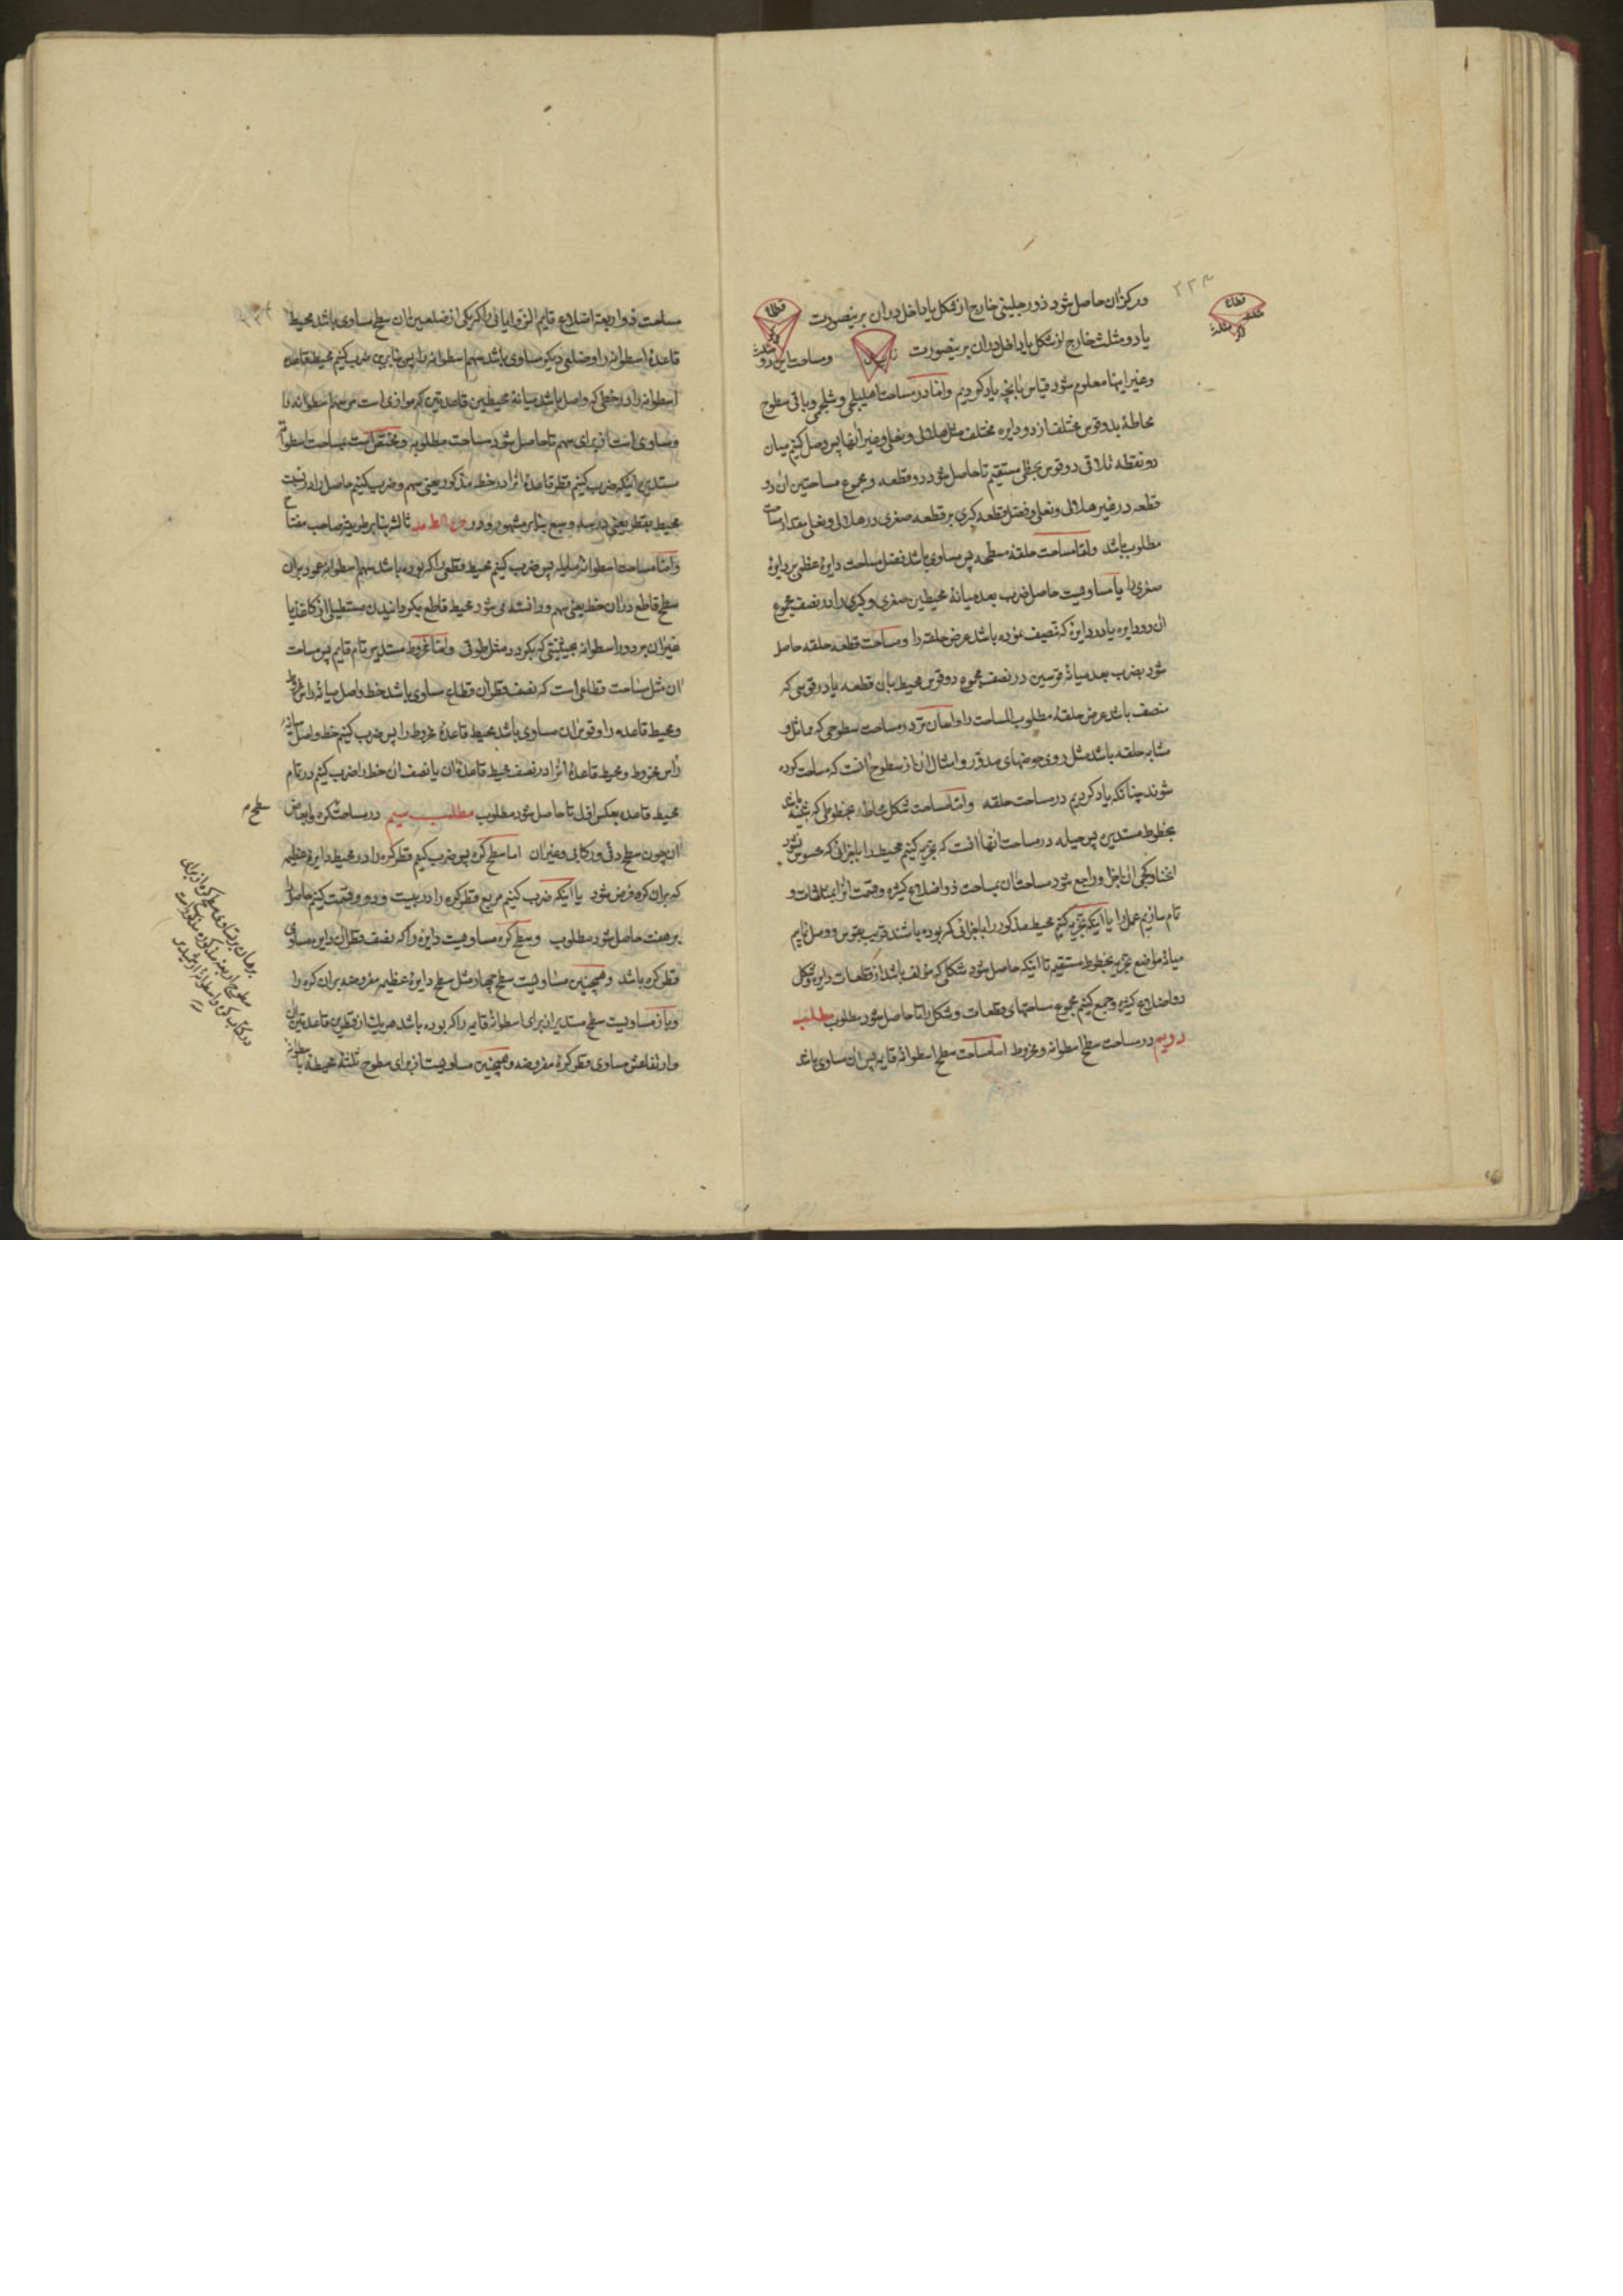 و مرکز آن حاصل شود ذو رجلینی خارج از شکل یا داخل در آن برینصورت
قطاع
مثلث
یا دو مثلث خارج از شکل یا داخل در آن برینصورت و مساحت این دو
و غیر اینها معلوم شود قیاس بآنچه یاد کردیم و اما در مساحت اهلیلجی و شلجمی و باقی سطوح
محاطهٔ بدو قوس مختلف از دو دایره مختلف مثل هلالی و نعلی و غیر آنها پس وصل کنیم میان
دو نقطه تلاقی دو قوس بخطی مستقیم تا حاصل شود دو قطعه و مجموع مساحتین آن دو
قطعه در غیر هلالی و نعلی و فضل قطعه کبری بر قطعه صغری در هلالی و نعلی مقدار مساحت
مطلوب باشد و اما مساحت حلقهٔ مسطحه پس مساوی باشد فضل مساحت دایرهٔ عظمی بر دایرهٔ
صغری را یا مساویست حاصل ضرب بعد میانهٔ محیطین صغری و کبری را در نصف مجموع
آن دو دایره یا در دایرهٔ که تنصیف نموده باشد عرض حلقه را و مساحت قطعه حلقه حاصل
شود بضرب بعد میانهٔ قوسین در نصف مجموع دو قوس محیط بآن قطعه یا در قوسی که
منصف باشد عرض حلقهٔ مطلوب المساحت را و در مساحت سطوحی که مماثل و
مشابه حلقه باشد مثل روی حوضهای مدوّر و امثال آن از سطوح آنست که مساحت کرده
شوند چنانکه یاد کردیم در مساحت حلقه و اما مساحت شکل محاطهٔ بخطوطی که نباشد
بخطوط مستدیره پس حیله در مساحت آنها آنست که تجزیه کنیم محیط را باجزائی که محسوس نشود
انحنا و کجی آن اجزا و راجع شود مساحت آن بمساحت ذو اضلاع کثیره و قسمت آنرا بمثلثات و
تام سازیم عمل را یا اینکه تجزیه کنیم محیط مذکور را باجزائی که بوده باشند قریب بقوس و وصل نمایم
میانهٔ مواضع تجزیه بخطوط مستقیم تا اینکه حاصل شود شکلی که مؤلف باشد از قطعات دایره و شکل
ذو اضلاع کثیره و جمع کنیم مجموع مساحتهای قطعات و شکل را تا حاصل شود مطلوب مطلب
دویم در مساحت سطح اسطوانه و مخروط اما مساحت سطح اسطوانهٔ قایمه پس آن مساوی باشد
مساحت ذو اربعة اضلاع قایم الزوایائی را که یکی از ضلعین آن سطح مساوی باشد محیط
قاعدهٔ اسطوانه را و ضلعی دیگر مساوی باشد سهم اسطوانه را پس بنابرین ضرب کنیم محیط قاعدهٔ
اسطوانه را در خطی که واصل باشد میانهٔ محیطین قاعدتین که موازی است مر سهم اسطوانه را
و مساوی است از برای سهم تا حاصل شود مساحت مطلوبه و مختص است بمساحت اسطوانهٔ
مستدیره اینکه ضرب کنیم قطر قاعدهٔ آنرا در خط مذکور یعنی سهم و ضرب کنیم حاصل را در نسبت
محیط بقطر یعنی در سه و سبع بنابر مشهور و در ثالثه بنابر طریقهٔ صاحب مفتاح
و اما مساحت اسطوانهٔ مایله پس ضرب کنیم محیط مقطعی را که بوده باشد سهم اسطوانه عمود بر آن
سطح قاطع در آن خط یعنی سهم و دانسته می شود محیط قاطع بگردانیدن مستطیلی از کاغذ یا
غیر آن بر دور اسطوانه بحیثیتی که بگردد مثل طوقی و اما مخروط مستدیر تام قایم پس مساحت
آن مثل مساحت قطاعی است که نصف قطر آن قطاع مساوی باشد خط واصل میانهٔ رأس مخروط
و محیط قاعده را و قوس آن مساوی باشد محیط قاعدهٔ مخروط را پس ضرب کنیم خط واصل میانهٔ
رأس مخروط و محیط قاعدهٔ آنرا در نصف محیط قاعدهٔ آن یا نصف آن خط را ضرب کنیم در تمام
محیط قاعده بعکس اول تا حاصل شود مطلوب مطلب سیم در مساحت کره و ابعاض
سطح
آن چون سطح دفی و رکابی و غیر آن اما سطح کره پس ضرب کنیم قطر کره را در محیط دایرهٔ عظیمه
که بر آن کره فرض شود یا اینکه ضرب کنیم مربع قطر کره را در بیست و دو و قسمت کنیم حاصل را
بر هفت حاصل شود مطلوب و سطح کره مساویست دایرهٔ را که نصف قطر آن دایره مساوی
قطر کره باشد و همچنین مساویست سطح چهار مثل سطح دایرهٔ عظیمه مفروضه بر آن کره را
و باز مساویست سطح مستدیر از برای اسطوانهٔ قایمه را که بوده باشد هر یک از قطرین قاعدتین آن
و ارتفاعش مساوی قطر کرهٔ مفروضه و همچنین مساویست از برای سطوح ثلثهٔ محیطه با اسطوانه
برهان بر تساوی سطح کره از برای
سطوح اربعه مذکوره
در کتاب کره و اسطوانهٔ ارشمیدس